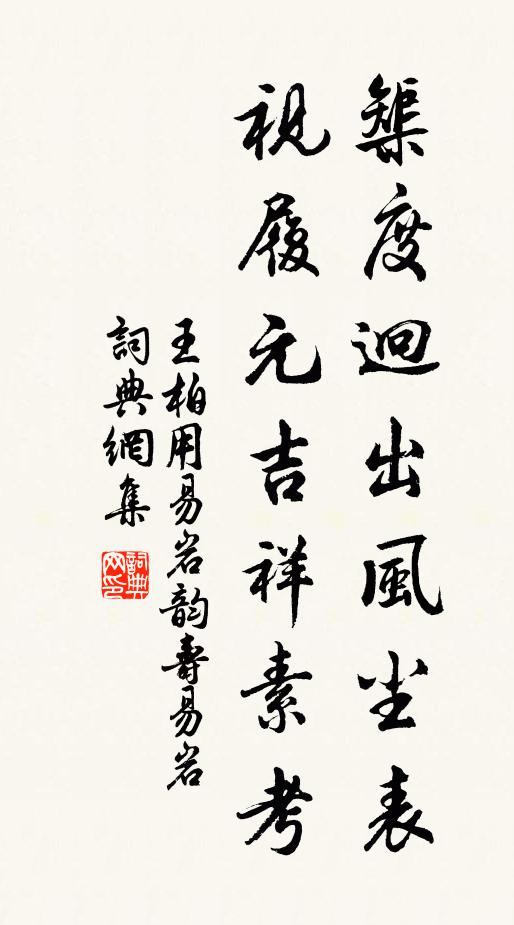 榘度迥出風尘表
視履元吉祥素考
王柏用易岩韵壽易岩
詞典網集
詞典网印